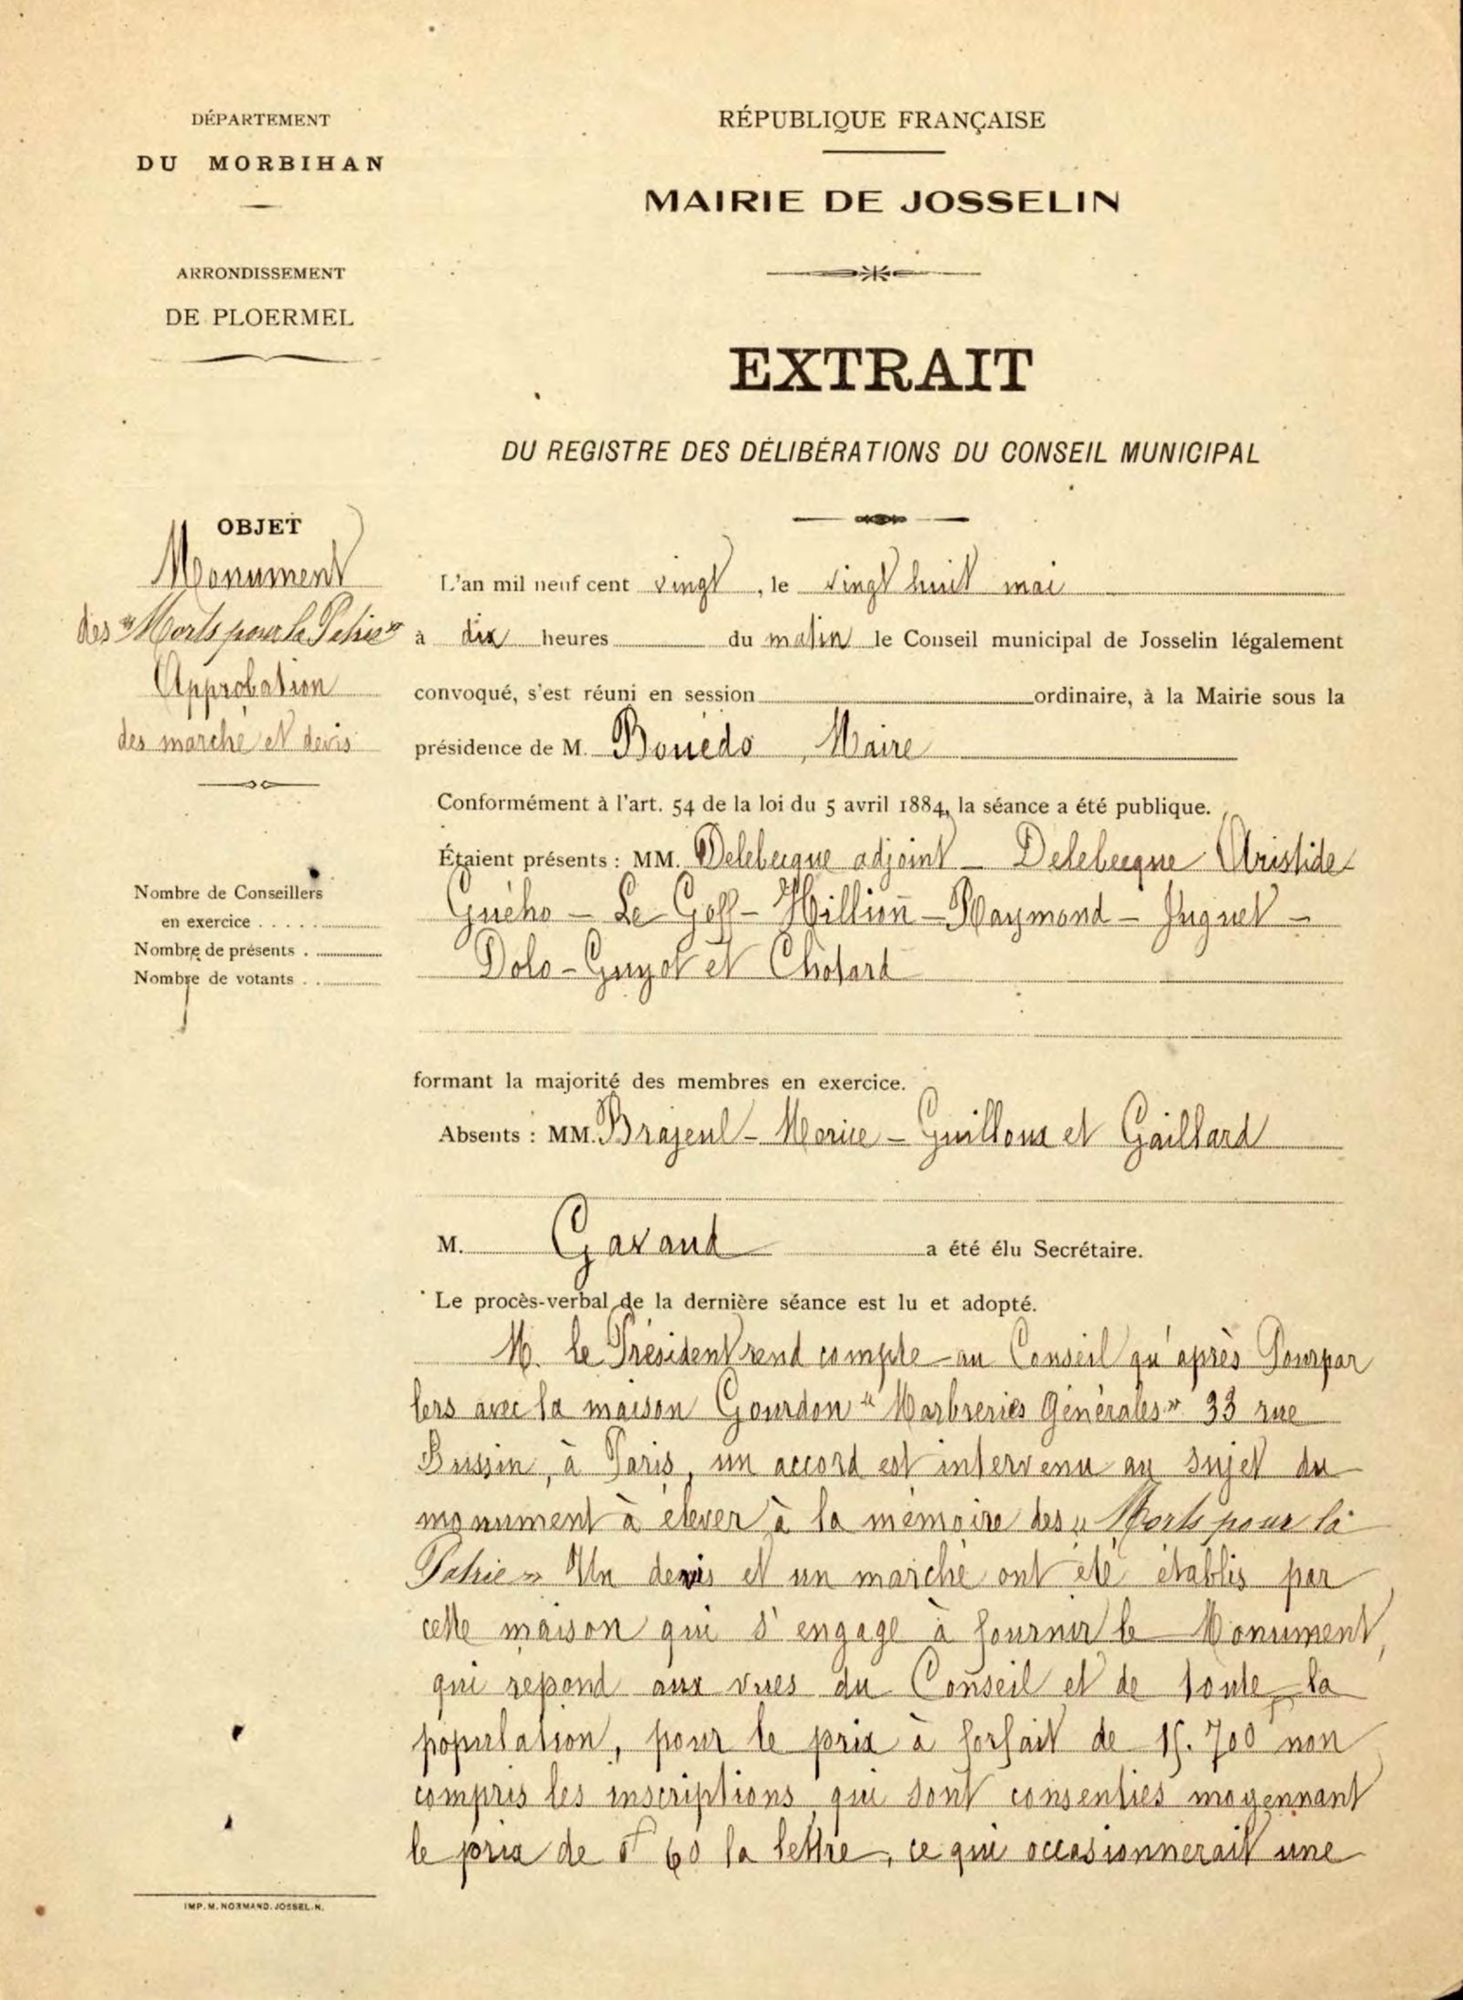 DÉPARTEMENT
DU MORBIHAN
ARRONDISSEMENT
DE PLOERMEL
RÉPUBLIQUE FRANÇAISE
MAIRIE DE JOSSELIN
EXTRAIT
DU REGISTRE DES DÉLIBÉRATIONS DU CONSEIL MUNICIPAL
OBJET
Monument
des "Morts pour la Patrie"
Approbation
des marché et devis
Nombre de Conseillers
en exercice . . . . .
Nombre de présents .
Nombre de votants . .
L'an mil neuf cent vingt, le vingt huit mai
à dix heures du matin le Conseil municipal de Josselin légalement
convoqué, s'est réuni en session ordinaire, à la Mairie sous la
présidence de M. Bouëdo, Maire
Conformément à l'art. 54 de la loi du 5 avril 1884, la séance a été publique.
Étaient présents : MM. Delebecque adjoint – Delebecque Aristide
Guého – Le Goff – Hillion – Raymond – Juguet –
Dolo – Guyot et Chotard
formant la majorité des membres en exercice.
Absents : MM. Brajeul – Morice – Guilloux et Gaillard
M. Gavaud a été élu Secrétaire.
Le procès-verbal de la dernière séance est lu et adopté.
M. le Président rend compte au Conseil qu'après Pourpar
lers avec la maison Gourdon "Marbreries Générales" 33 rue
Bussin, à Paris, un accord est intervenu au sujet du
monument à élever à la mémoire des "Morts pour la
Patrie" Un devis et un marché ont été établis par
cette maison qui s'engage à fournir le Monument,
qui répond aux vues du Conseil et de toute la
population, pour le prix à forfait de 15.700 non
compris les inscriptions qui sont consenties moyennant
le prix de 0f 60 la lettre, ce qui occasionnerait une
IMP. M. NORMAND. JOSSELIN.